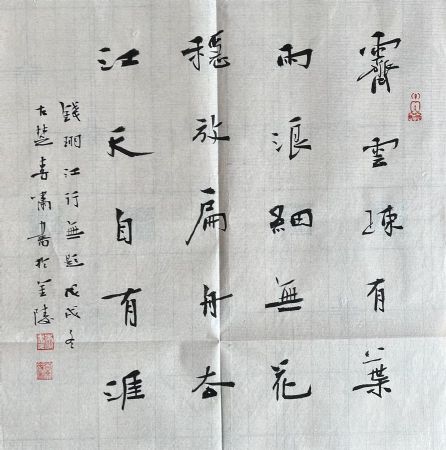 霽雲疎有葉
雨浪細無花
穩放扁舟去
江天自有涯
錢珝江行無題戊戌冬
古楚喜嘯書於金陵